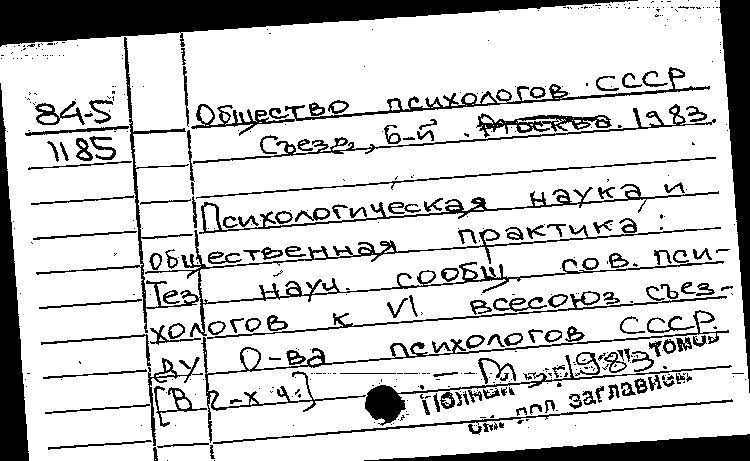 84-5
1185
Общество психологов СССР
Съезд, 6-й. Москва. 1983.
Психологическая наука и
общественная практика:
Тез. науч. сообщ. сов. пси-
хологов к VI всесоюз. съез-
ду О-ва психологов СССР.
[В 2-х ч.] . – М., 1983
Полный томов
см. под заглавием